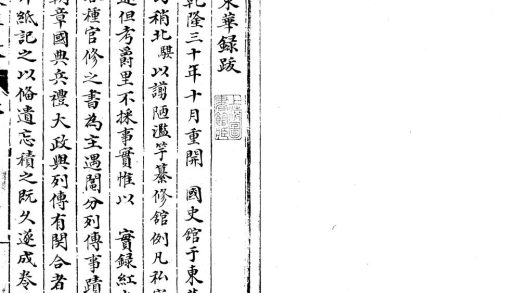 東華録跋
乾隆三十年十月重開 國史館于東
稍北騏以謭陋濫竽纂修館例凡私
述但考爵里不採事實惟以 實録紅
各種官修之書為主遇閣分列傳事蹟
朝章國典兵禮大政與列傳有関合者
片紙記之以俻遺忘積之既久遂成卷
上海圖書館藏